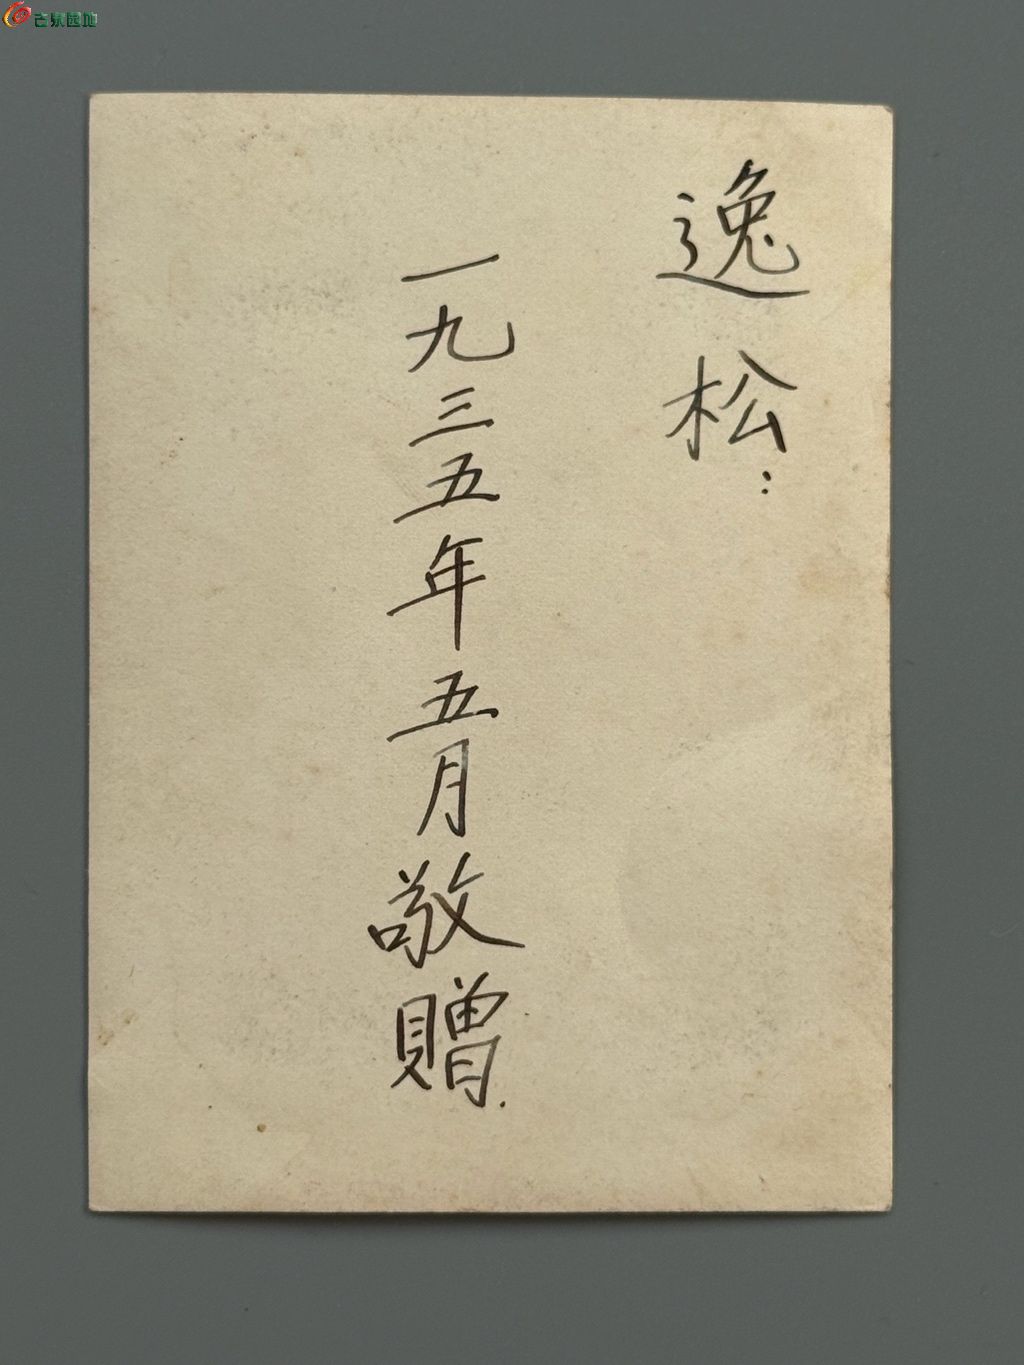 古泉园地
逸松：
一九三五年五月敬贈.